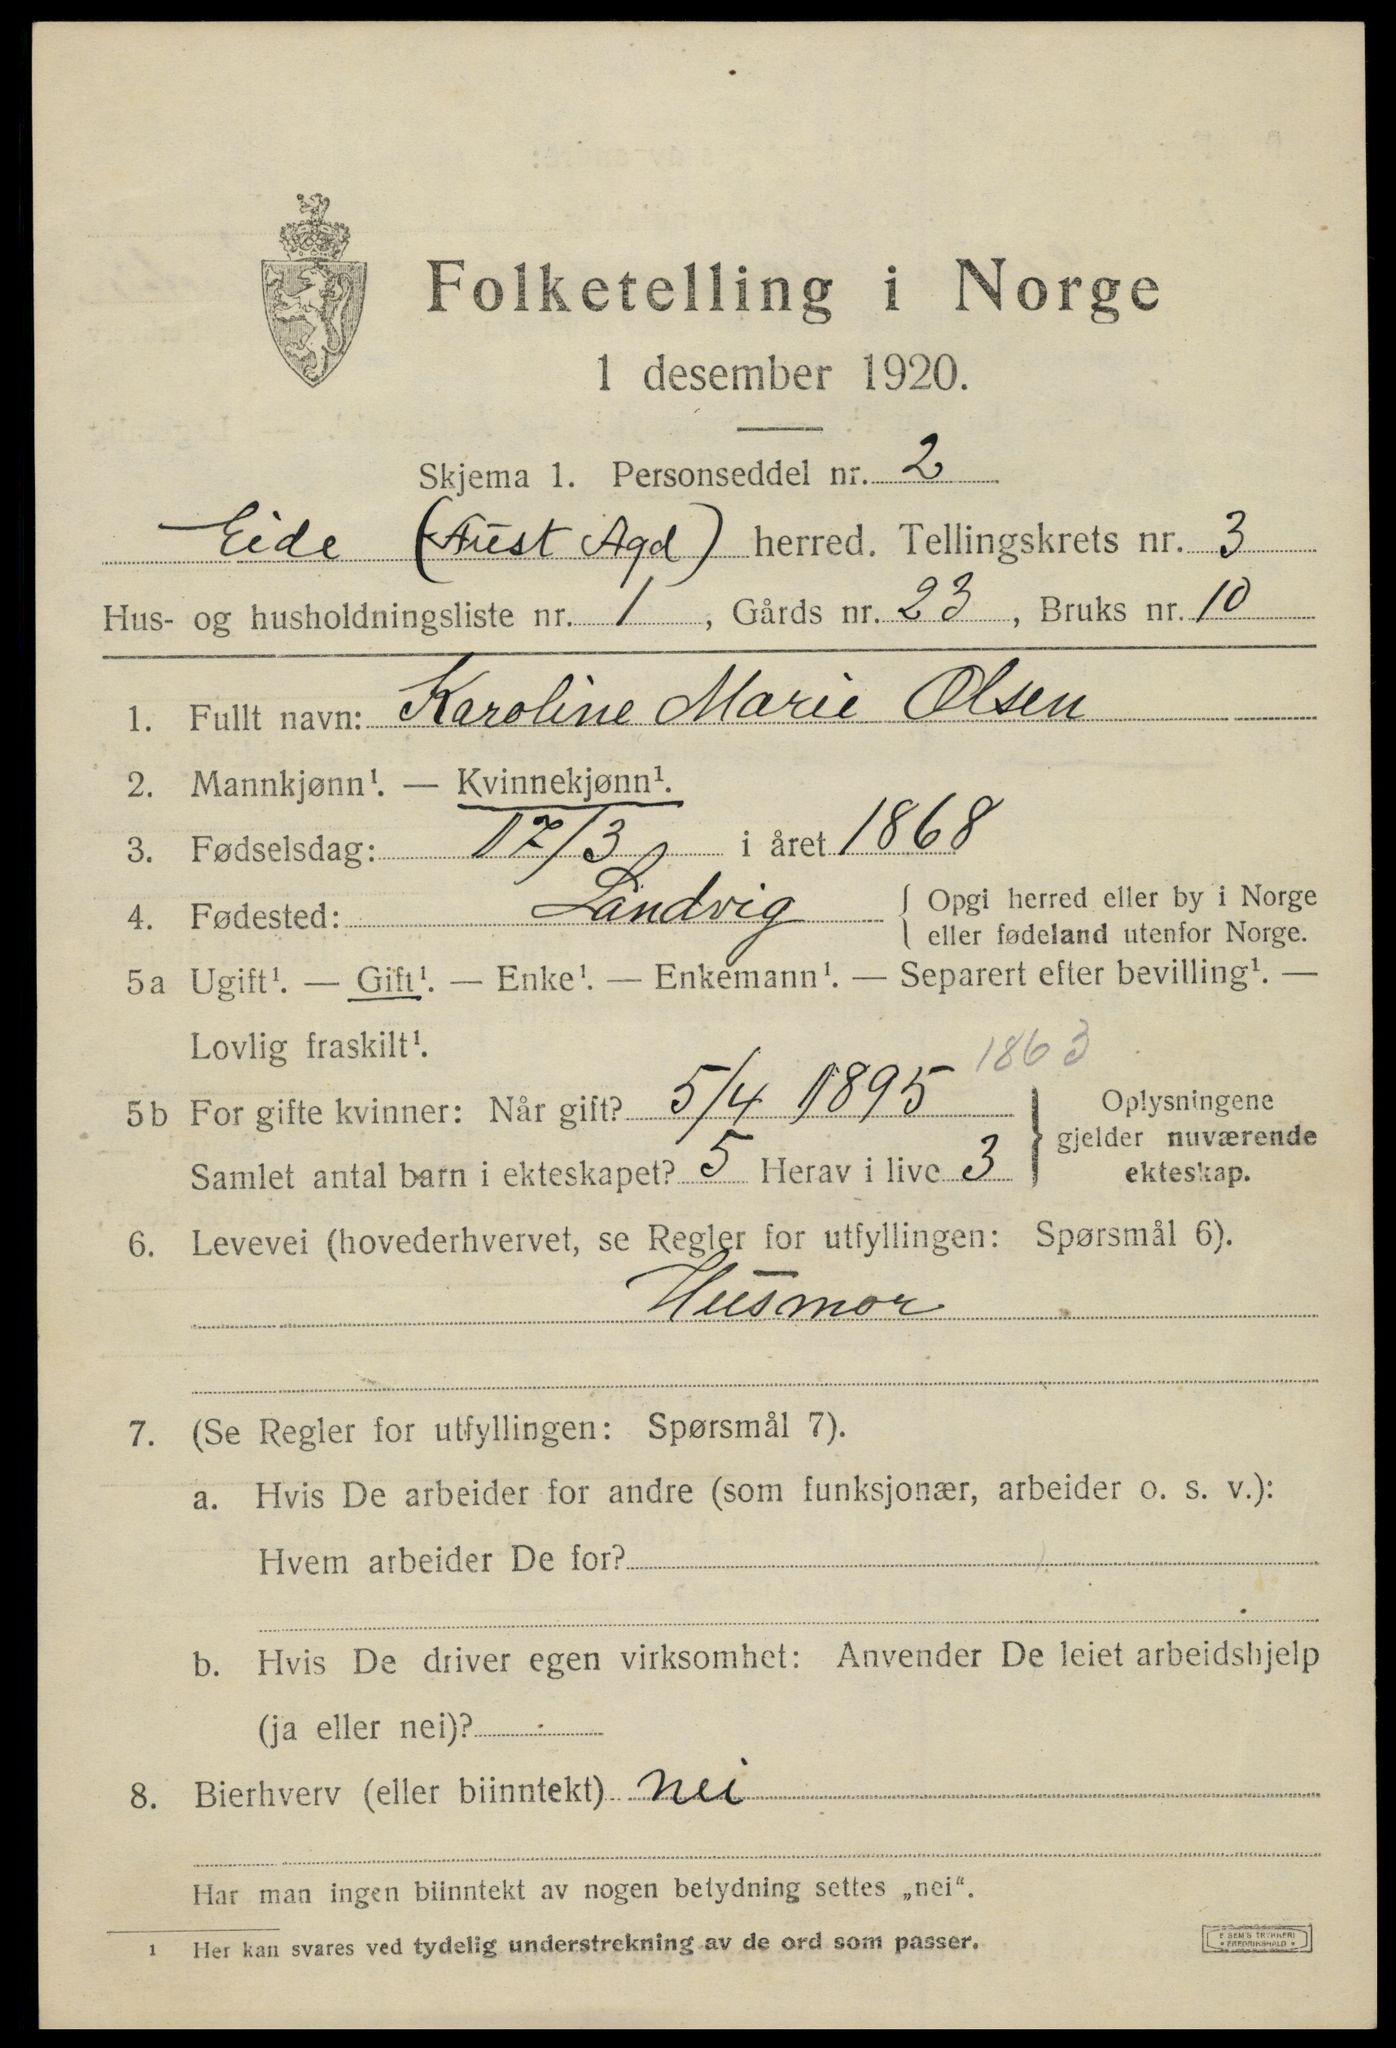 Folketelling i Norge
1 desember 1920.
Skjema 1. Personseddel nr. 2
Eide (Aust Agd) herred. Tellingskrets nr. 3
Hus- og husholdningsliste nr. 1, Gårds nr. 23, Bruks nr. 10
1. Fullt navn: Karoline Marie Olsen
2. Mannkjønn¹. — Kvinnekjønn¹.
3. Fødselsdag: 17/3 i året 1868
4. Fødested: Landvig { Opgi herred eller by i Norge
eller fødeland utenfor Norge.
5a Ugift¹. — Gift¹. — Enke¹. — Enkemann¹. — Separert efter bevilling¹. —
Lovlig fraskilt¹.
1863
5b For gifte kvinner: Når gift? 5/4 1895 } Oplysningene
gjelder nuværende
Samlet antal barn i ekteskapet? 5 Herav i live 3 ekteskap.
6. Levevei (hovederhvervet, se Regler for utfyllingen: Spørsmål 6).
Husmor
7. (Se Regler for utfyllingen: Spørsmål 7).
a. Hvis De arbeider for andre (som funksjonær, arbeider o. s. v.):
Hvem arbeider De for?
b. Hvis De driver egen virksomhet: Anvender De leiet arbeidshjelp
(ja eller nei)?
8. Bierhverv (eller biinntekt) nei
Har man ingen biinntekt av nogen betydning settes „nei“.
¹ Her kan svares ved tydelig understrekning av de ord som passer.
E SEM'S TRYKKERI
• FREDRIKSHALD •